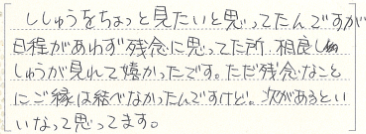 ししゅうをちょっと見たいと思ってたんですが
日程があわず残念に思ってた所、相良し
しゅうが見れて嬉かったです。ただ残念なこと
にご縁は結べなかったんですけど。次があるとい
いなって思ってます。